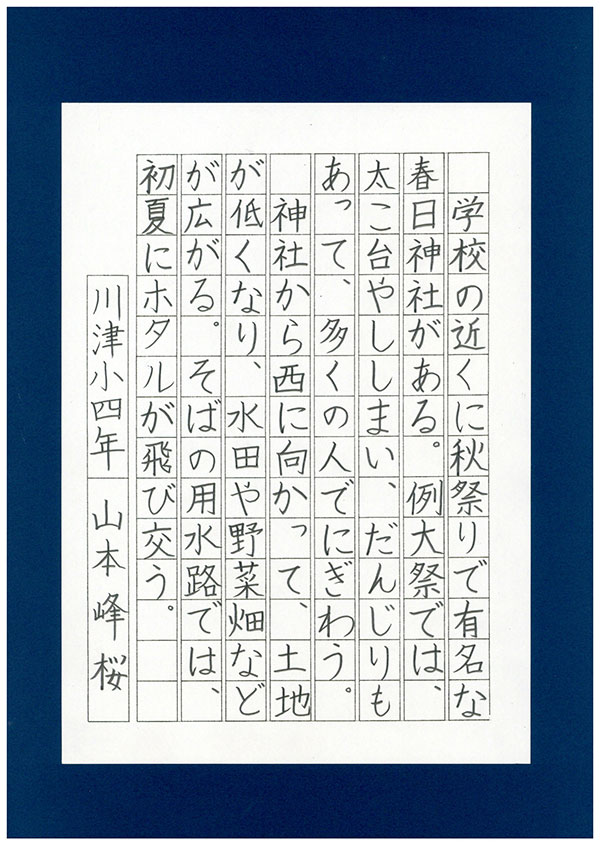 学校の近くに秋祭りで有名な
春日神社がある。例大祭では、
太こ台やししまい、だんじりも
あって、多くの人でにぎわう。
　神社から西に向かって、土地
が低くなり、水田や野菜畑など
が広がる。そばの用水路では、
初夏にホタルが飛び交う。
川津小四年 山本峰桜